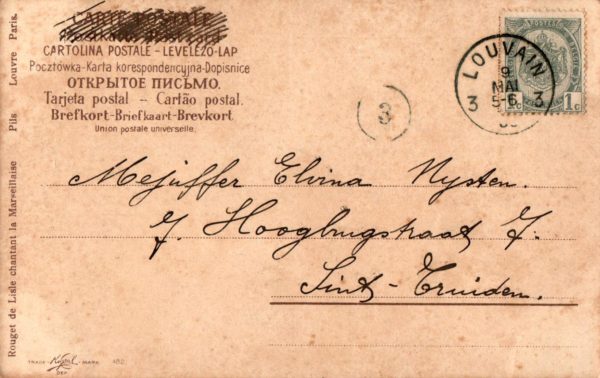 CARTE POSTALE
CARTOLINA POSTALE - LEVELEZŐ-LAP
Pocztówka-Karta korespondencyjna-Dopisnice
ОТКРЫТОЕ ПИСЬМО.
Tarjeta postal - Cartão postal.
Brefkort-Briefkaart-Brevkort.
Union postale universelle.
LOUVAIN
9
MAI
5-6
3 3
1c 1c
3
Mejuffer Elvina Nysten.
7. Hoogbrugstraat 7.
Sint-Truiden.
Rouget de Lisle chantant la Marseillaise Pils Louvre Paris.
TRADE MARK
DEP